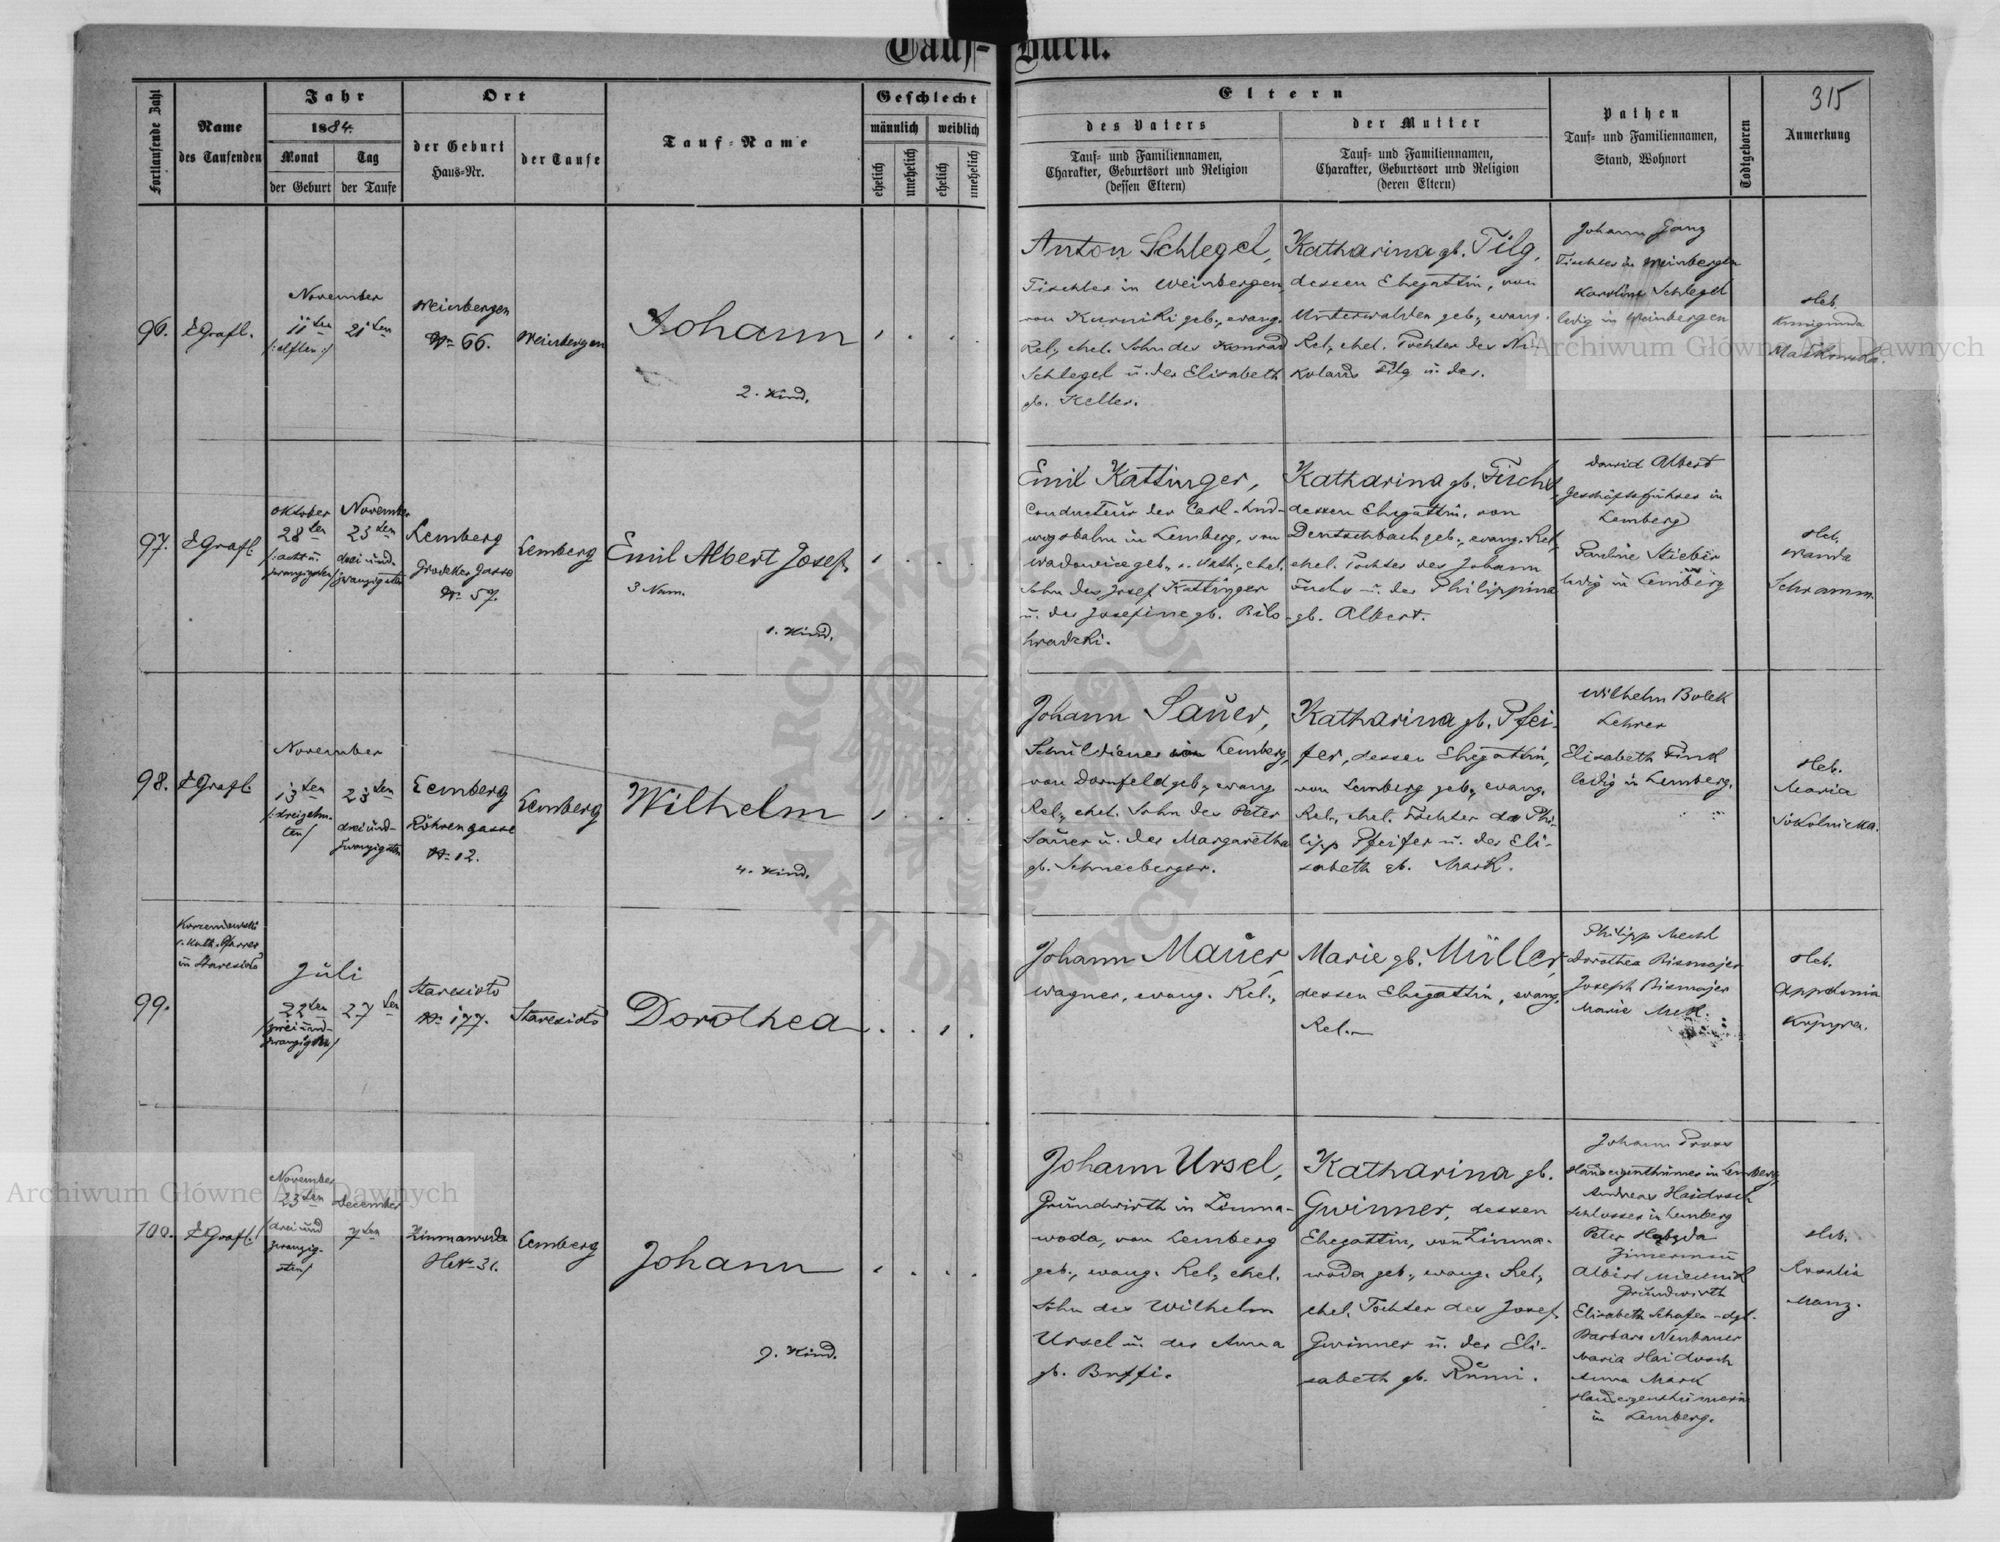 Tauf-Buch.
315
Fortlaufende Zahl
Name
des Taufenden
Jahr
1884.
Monat
Tag
der Geburt
der Taufe
Ort
der Geburt
Haus-Nr.
der Taufe
Tauf-Name
Geschlecht
männlich
weiblich
ehelich
unehelich
ehelich
unehelich
Eltern
des Vaters
Tauf- und Familiennamen,
Charakter, Geburtsort und Religion
(dessen Eltern)
der Mutter
Tauf- und Familiennamen,
Charakter, Geburtsort und Religion
(deren Eltern)
Pathen
Tauf- und Familiennamen,
Stand, Wohnort
Todtgeboren
Anmerkung
96.
EGrafl.
November
11ten
/:elften:/
21ten
Weinbergen
Nr. 66.
Weinbergen
Johann
2. Kind.
Anton Schlegel,
Tischler in Weinbergen,
von Kurniki geb., evang.
Rel., ehel. Sohn des Konrad
Schlegel u. der Elisabeth
gb. Keller.
Katharina gb. Tilg,
dessen Ehegattin, von
Unterwalden geb., evang.
Rel., ehel. Tochter des Ni-
kolaus Tilg u. der.
Johann Ganz
Tischler in Weinbergen
Karoline Schlegel
ledig in Weinbergen
Heb.
Kunigunda
97.
EGrafl.
Oktober
28ten
/:acht u.
zwanzigsten/
November
23ten
drei und-
zwanzigsten
Lemberg
Grodeker Gasse
Nr. 57.
Lemberg
Emil Albert Josef.
3 Nam.
1. Kind.
Emil Kattinger,
Conducteur der Carl-Lud-
wigsbahn in Lemberg, von
Wadowice geb., r. kath., ehel.
Sohn des Josef Kattinger
u. der Josefine gb. Bilo
hradzki.
Katharina gb. Fuchs,
dessen Ehegattin, von
Deutschbach geb., evang. Rel.,
ehel. Tochter des Johann
Fuchs u. der Philippina
gb. Albert.
David Albert
Geschäftsführer in
Lemberg
Pauline Stieber
ledig in Lemberg
Heb.
Wanda
Schramm.
98.
EGrafl.
November
13ten
/:dreizehn-
ten/
23ten
drei und-
zwanzigsten
Lemberg
Röhrengasse
Nr. 12.
Lemberg
Wilhelm
4. Kind.
Johann Sauer,
Schuldiener in Lemberg,
von Dornfeld geb., evang.
Rel., ehel. Sohn des Peter
Sauer u. der Margaretha
gb. Schneeberger.
Katharina gb. Pfei-
fer, dessen Ehegattin,
von Lemberg geb., evang.
Rel., ehel. Tochter des Phi-
lipp Pfeifer u. der Eli-
sabeth gb. Mark.
Wilhelm Bolek
Lehrer
Elisabeth Fink
ledig in Lemberg.
Heb.
Maria
Sokolnicka.
99.
r. kath. Pfarrer
in Staresioło
Juli
22ten
/zwei und-
zwanzigsten/
27ten
Staresioło
Nr. 177.
Staresioło
Dorothea
Johann Mauer,
Wagner, evang. Rel.,
Marie gb. Müller,
dessen Ehegattin, evang.
Rel.
Philipp
Dorothea Bismajer
Joseph Bismajer
Marie
Heb.
Appolonia
100.
EGrafl.
November
23ten
/drei und
zwanzig-
sten/
December
7ten
Zimnawoda
HNr. 31.
Lemberg
Johann
9. Kind.
Johann Ursel,
Grundwirth in Zimna-
woda, von Lemberg
geb., evang. Rel., ehel.
Sohn des Wilhelm
Ursel u. der Anna
gb. Buffi.
Katharina gb.
Gwinner, dessen
Ehegattin, von Zimna-
woda geb., evang. Rel.,
ehel. Tochter des Josef
Gwinner u. der Eli-
sabeth gb. Rümi.
Johann
Hauseigenthümer in Lemberg,
Andreas Haidosch
Schlosser in Lemberg
Peter
Zimermann
Albert
Grundwirth
Elisabeth Schafer - dgl.
Barbara Neubauer
Maria Haidosch
Anna Mark
Hauseigenthümerin
in Lemberg.
Heb.
Rosalia
Manz.
Archiwum Główne Akt Dawnych
Archiwum Główne Akt Dawnych